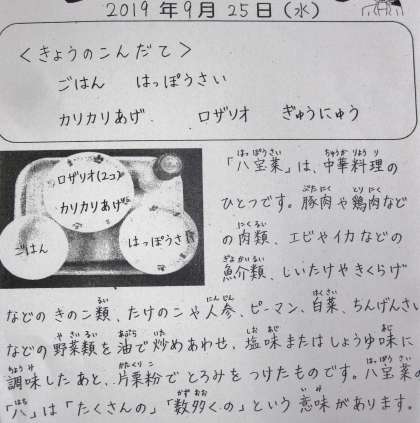 2019年9月25日(水)
<きょうのこんだて>
ごはん はっぽうさい
カリカリあげ ロザリオ ぎゅうにゅう
ロザリオ(2コ)
カリカリあげ
ごはん
はっぽうさ
「八宝菜」は、中華料理の
ひとつです。豚肉や鶏肉など
の肉類、エビやイカなどの
魚介類、しいたけやきくらげ
などのきのこ類、たけのこや人参、ピーマン、白菜、ちんげんさい
などの野菜類を油で炒めあわせ、塩味またはしょうゆ味に
調味したあと、片栗粉でとろみをつけたものです。八宝菜の
「八」は「たくさんの」「数多くの」という意味があります。